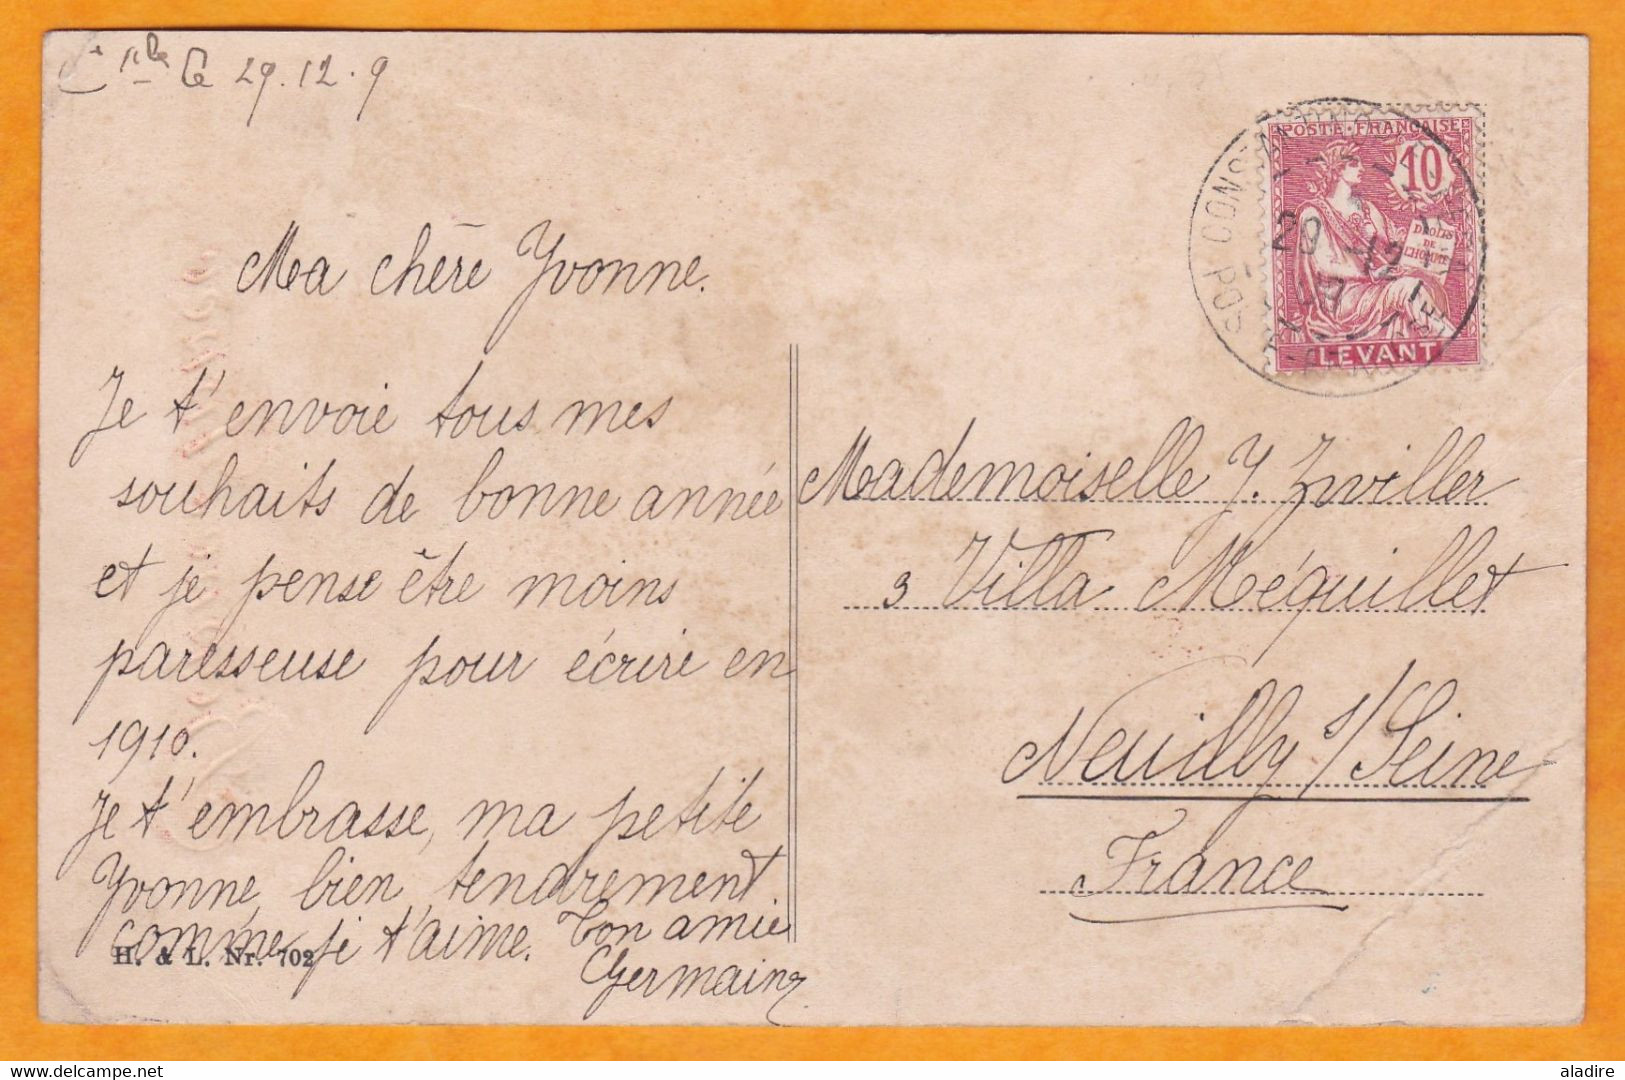 C^nple le 29.12.9
Ma chère Yvonne.
Je t'envoie tous mes
souhaits de bonne année
et je pense être moins
paresseuse pour écrire en
1910.
Je t'embrasse, ma petite
Yvonne, bien tendrement
comme je t'aime. Ton amie
Germaine
H. & L. Nr. 702
POSTE FRANÇAISE
10
DROITS
DE
L'HOMME
LEVANT
29 12
09
Mademoiselle Y. Zwiller
3 Villa Méquillet
Neuilly s/Seine
France
delcampe.net
aladire